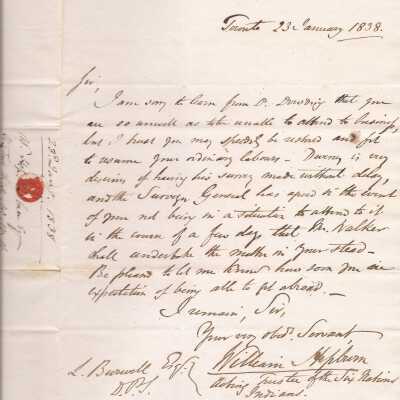 Toronto 23 January 1838.
Sir,
I am sorry to learn from D. Dowding that you
are so unwell as to be unable to attend to business,
but I trust you may speedily be restored and fit
to resume your ordinary labours - is very
desirous of having his survey made without delay,
and the Surveyor General has agreed in the event
of your not being in a situation to attend to it
in the course of a few days that Mr. Walker
shall undertake the matter in your stead -
Be pleased to let me know how soon you are in
expectation of being able to get abroad. -
I remain, Sir,
Your very obdt. Servant,
William Hepburn
L. Burwell Esq.
D.P.S.
Acting Trustee of the Six Nations
Indians.
1838